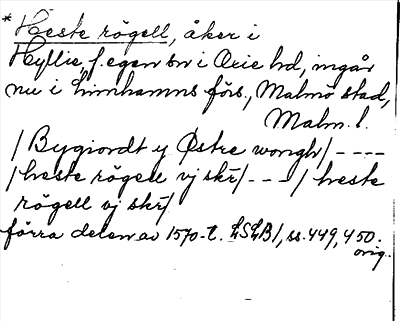 * Heste rögell, åker i
Hyllie, f. egen sn i Oxie hd, ingår
nu i Limhamns förs., Malmö stad,
Malm. l.
/ Bygiordt y Østre wongh/ ----
/ heste rögell vj skr/ --- / heste
rögell vj skr/
förra delen av 1570-t. LSLB1, ss. 449, 450.
orig.